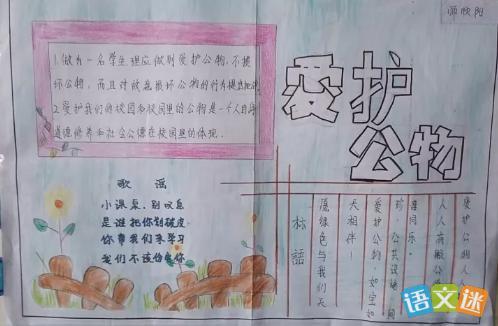 爱护
公物
1.做为一名学生理应做到爱护公物,不损
坏公物,而且对故意损坏公物的行为提出批评
2.爱护我们的校园和校园里的公物是一个人自身
道德修养和社会公德在校园里的体现.
歌谣
小课桌,别叹息
是谁把你划破皮
你帮我们来学习
我们不该伤害你
标语
爱护公物人
人人有
喜同乐。
珍·公共设施同
爱护公物·如
天相伴!
愿绿色与我们天
语文迷